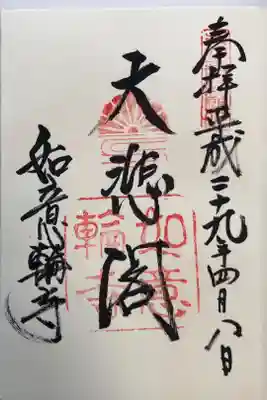 奉拝 平成二十九年四月八日
大悲閣
如意輪寺
如意輪寺